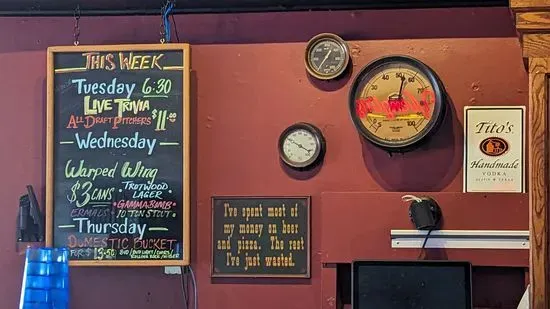 THIS WEEK
Tuesday 6:30
LIVE TRIVIA
ALL DRAFT PITCHERS $11.00
Wednesday
Warped Wing
$3 CANS
TROTWOOD
LAGER
• GAMMABOMB •
ERMAL'S • 10 TON STOUT •
Thursday
DOMESTIC BUCKET
FOR $13.50
50
100
Tito's
Handmade
VODKA
AUSTIN ★ TEXAS
I've spent most of
my money on beer
and pizza. The rest
I've just wasted.